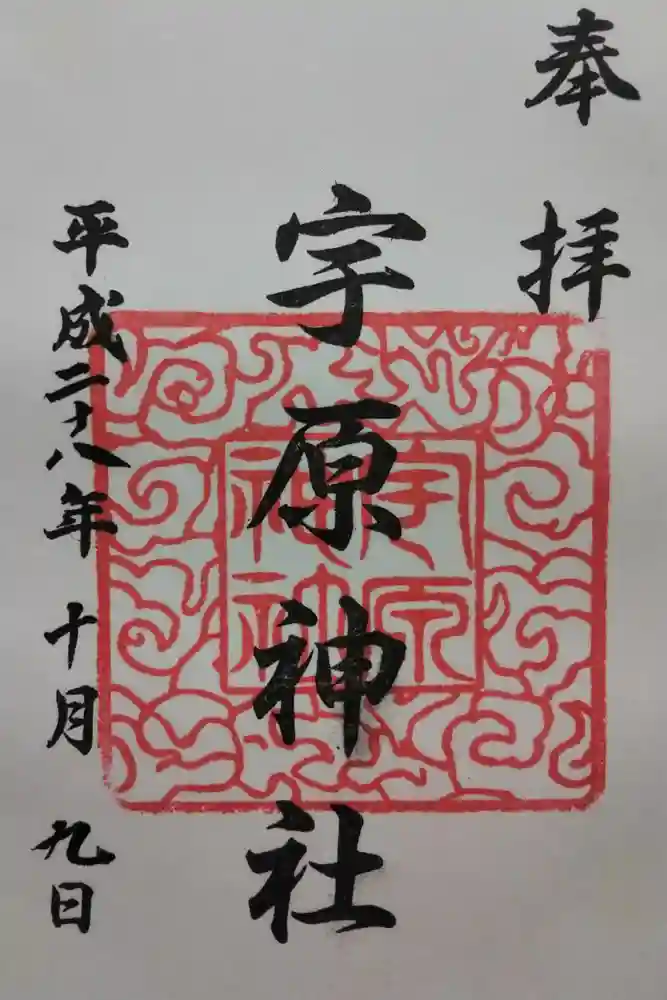 奉拝
宇原神社
宇原
神社
平成二十八年十月九日